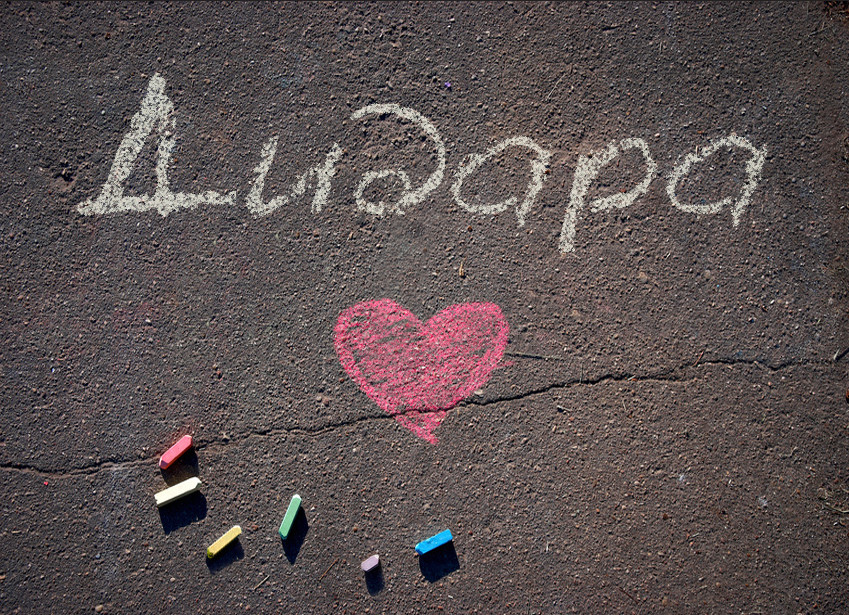 Дидара